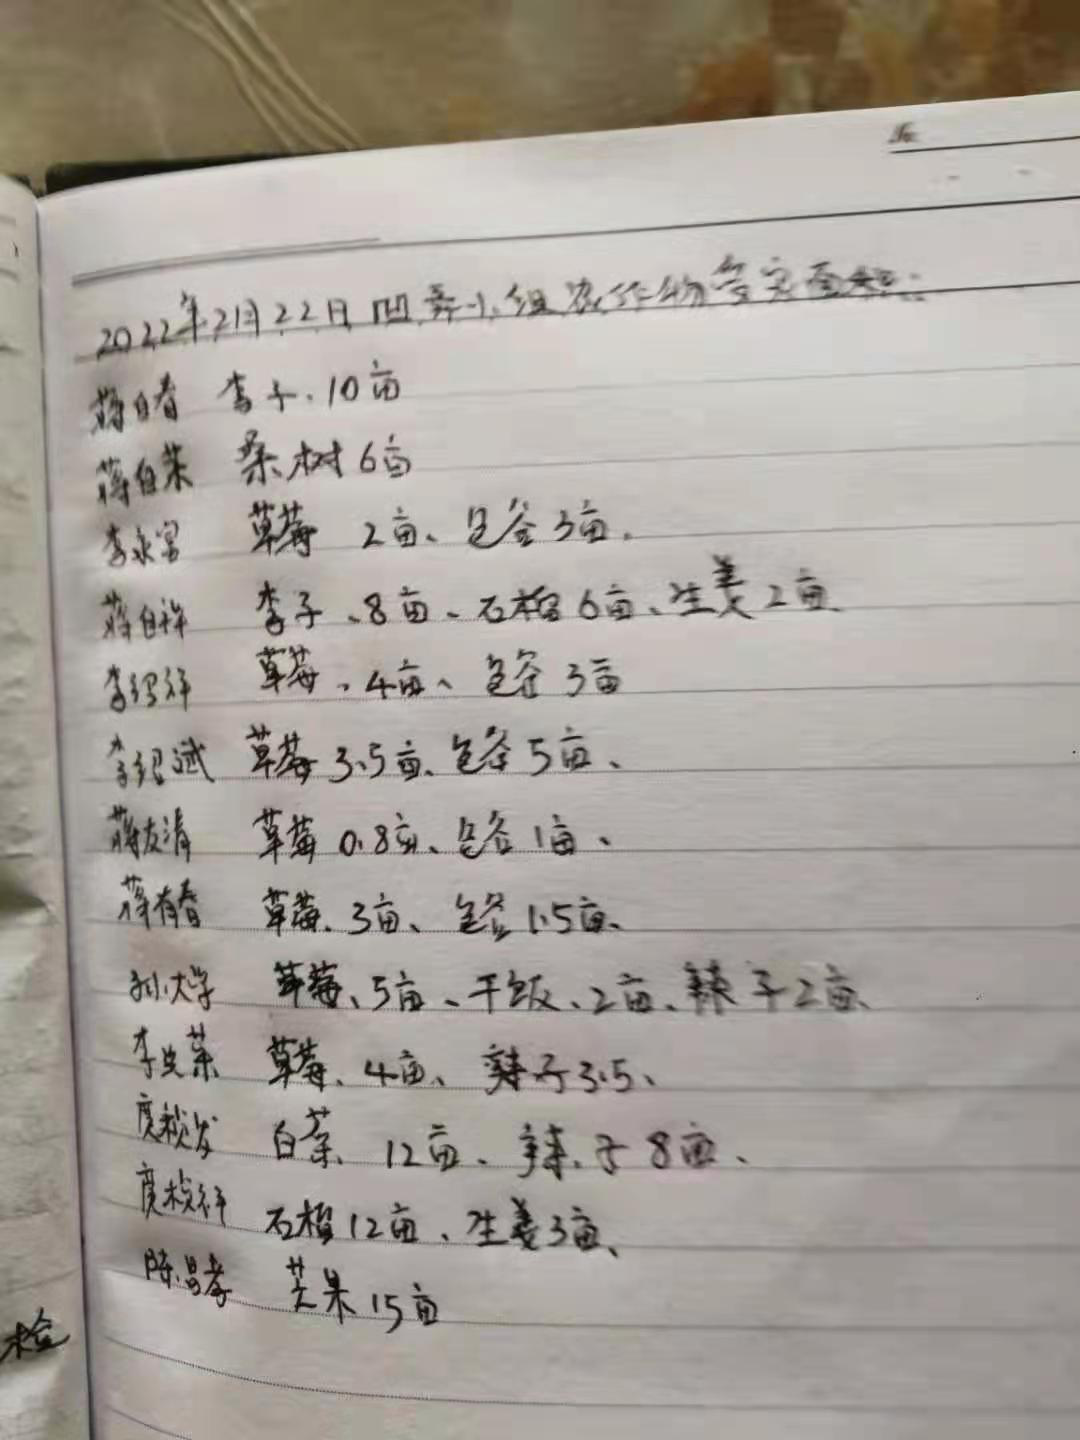 2022年2月22日凹 小组农作物 实面积:
蒋自春 李子.10亩
蒋自荣 桑树6亩
李永富 草莓 2亩、包谷3亩.
蒋自祥 李子、8亩、石榴6亩、生姜2亩
李绍祥 草莓、4亩、包谷3亩
李绍斌 草莓3.5亩、包谷5亩、
蒋友清 草莓0.8亩、包谷1亩、
蒋有春 草莓.3亩、包谷1.5亩、
孙大学 草莓、5亩、干饭、2亩、辣子2亩、
李 荣 草莓、4亩、辣子3.5、
白菜、12亩、辣子8亩、
石榴12亩、生姜3亩、
陈昌孝 芒果15亩
检